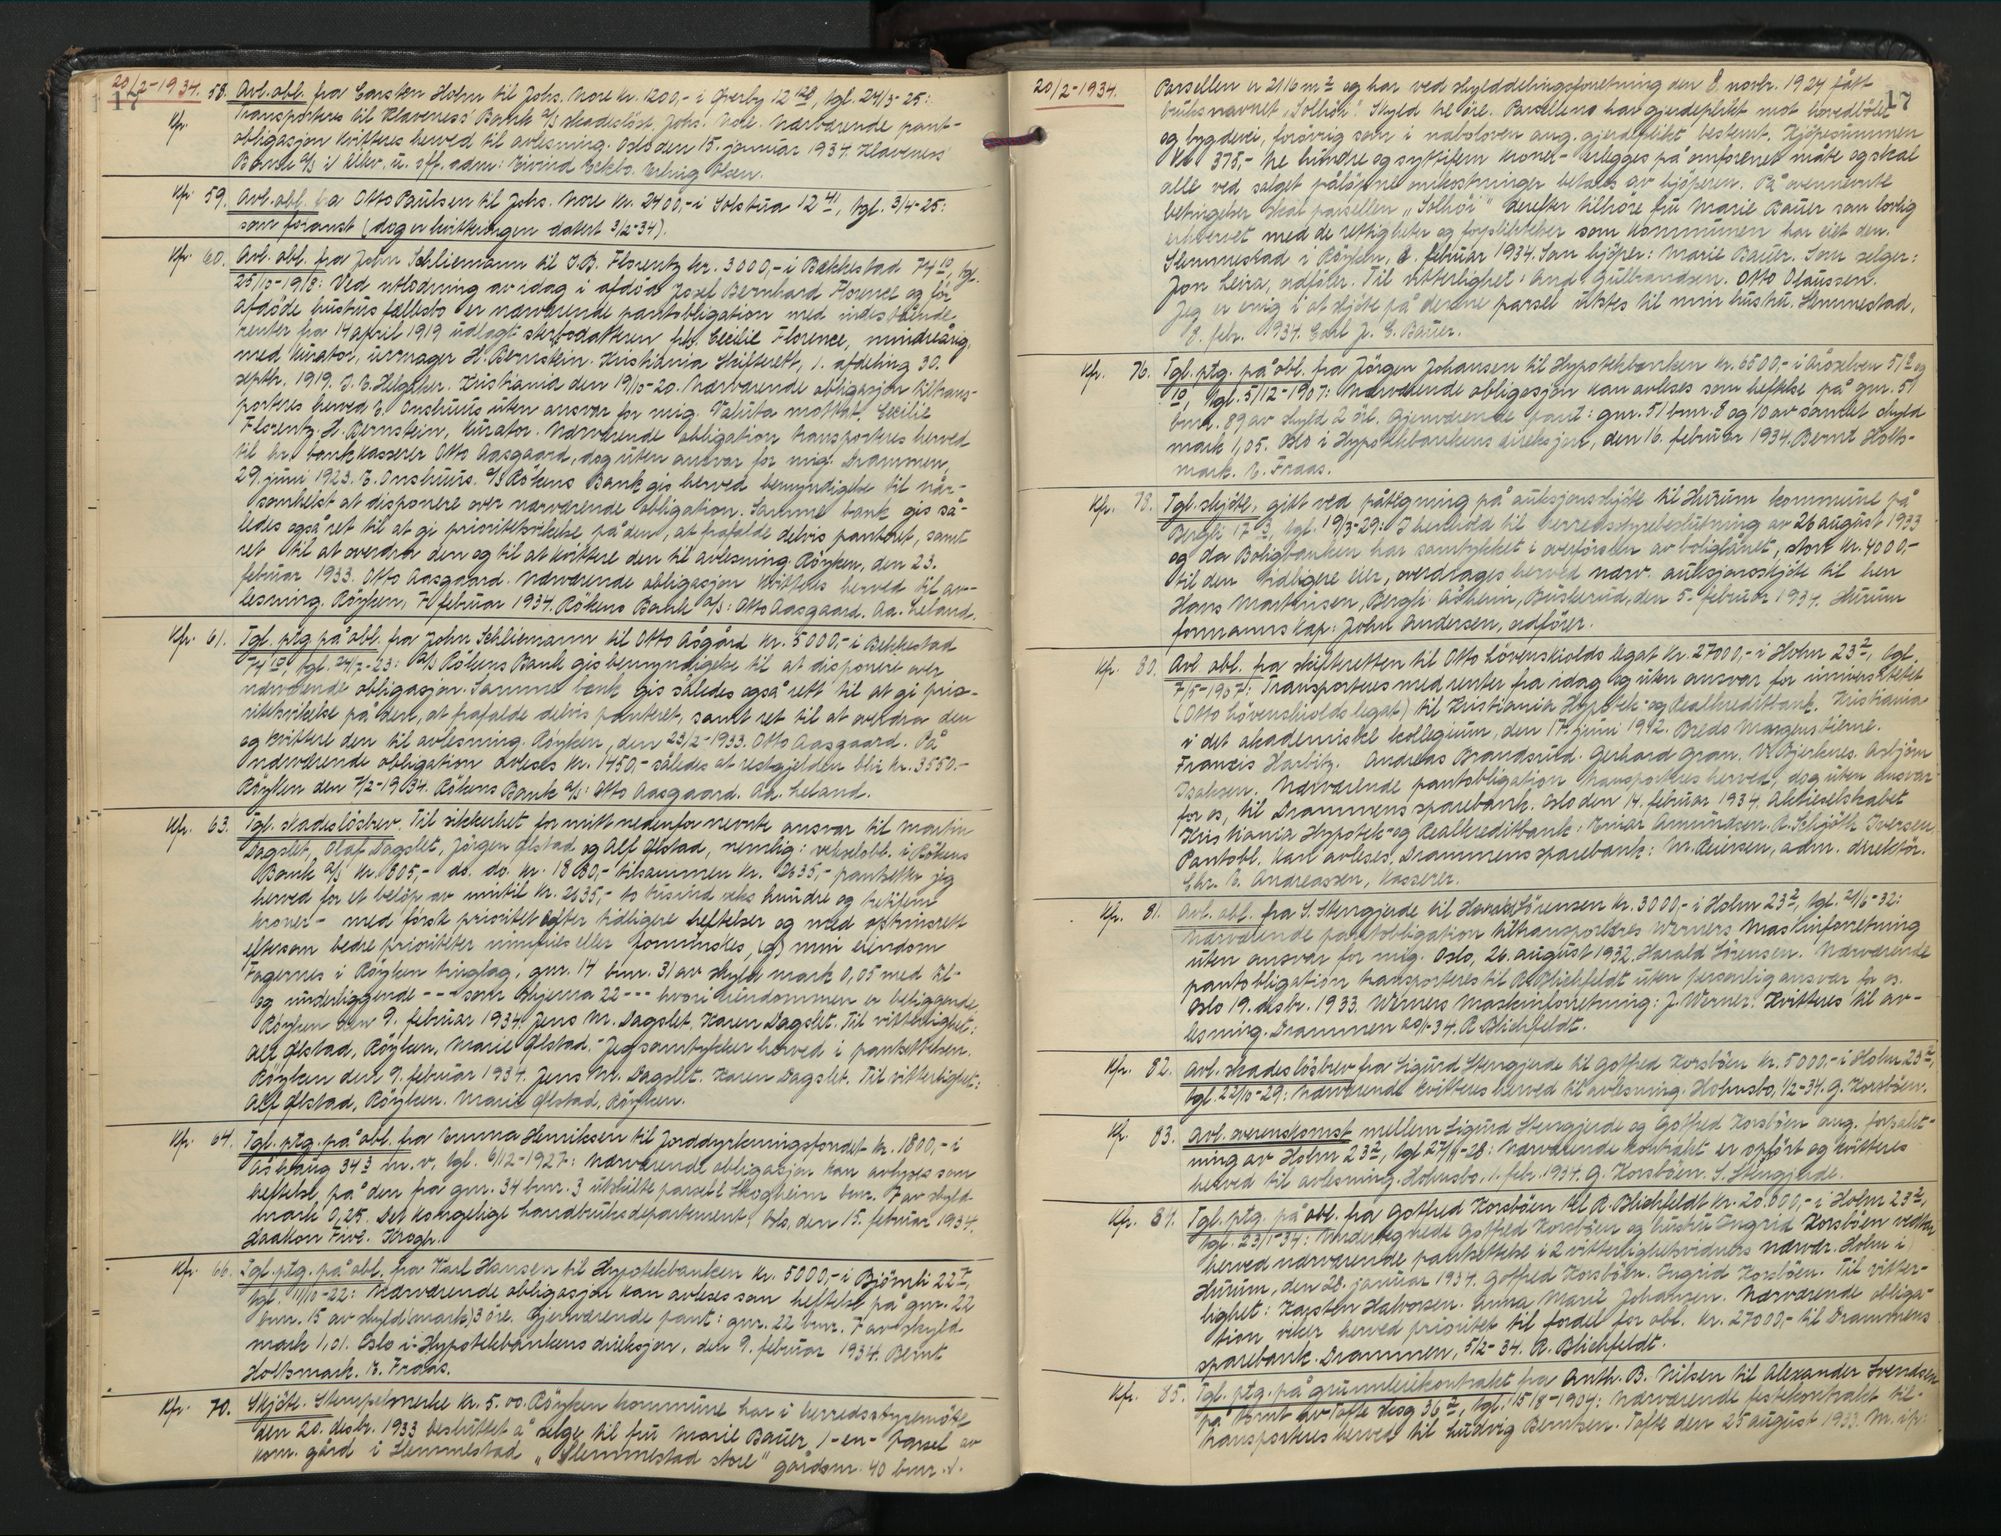 20/2-1934.
17
58. Avl. obl. fra Carsten Holm til Johs. More kr. 1200,- i Øverby 12 128, tgl. 24/3-25:
Kfr. Transporteres til Klaveness Bank A/S skadesløst. Johs. More. Nærværende pant-
obligasjon kvitteres herved til avlesning. Oslo den 15. januar 1934. Klaveness
Banks A/S i
Kfr. 59. Avl. obl. fra Otto Paulsen til Johs. More kr. 2400,- i Solstua 12 41, tgl. 3/4-25:
som foranst (dog er kvitteringen datert 3/2-34).
Kfr. 60. Avl. obl. fra John Schliemann til J.B. Florentz kr. 3000,- i Bekkestad 74 10, tgl.
25/10-1918: Ved utlodning av idag i afdøde Josef Bernhard Florence og før
afdøde hustrus fællesbo er nærværende pantobligation med indestående
renter fra 14 april 1919 udlagt sterbodatteren frk. Cecilie Florence, mindreårig,
med kurator, urmager H. Bernstein. Kristiania Skifterett, 1. afdeling 30.
septbr. 1919. J. E. Helgeker. Kristiania den 19/10-20. Nærværende obligasjon tiltrans-
porteres herved E. Onshuus uten ansvar for mig. Valuta mottat. Cecilie
Florentz. H. Bernstein, kurator. Nærværende obligation transporteres herved
til hr. bankkasserer Otto Aasgaard, dog uten ansvar for mig. Drammen,
29. juni 1923. E. Onshuus. A/S Røkens Bank gis herved bemyndigelse til når-
somhelst at disponere over nærværende obligation. Samme bank gis så-
ledes også ret til at gi prioritetsvikelse på den, at frafalde delvis panteret, samt
ret til at overdra den og til at kvittere den til avlesning. Røyken, den 23.
februar 1933. Otto Aasgaard. Nærværende obligasjon kvitteres herved til av-
lesning. Røyken, 7 februar 1934. Røkens Bank A/S: Otto Aasgaard. Aa. Leland.
Kfr. 61. Tgl. ptg. på obl. fra John Schliemann til Otto Åsgård kr. 5000,- i Bekkestad
74 10, tgl. 24/2-23: A/S Røkens Bank gis bemyndigelse til at disponere over
nærværende obligasjon. Samme bank gis således også rett til at gi prio-
ritetsvikelse på den, at frafalde delvis panteret, samt ret til at overdra den
og kvittere den til avlesning. Røyken, den 23/2-1933. Otto Aasgaard. På
nærværende obligation avleses kr. 1450,- således at restgjelden blir kr. 3550.-
Røyken den 7/2-1934. Røkens Bank A/S: Otto Aasgaard. Aa. Leland.
Kfr. 63. Tgl. skadesløsbrev. Til sikkerhet for mitt nedenfor nevnte ansvar til Martin
Dagslet, Olaf Dagslet, Jørgen Ølstad og Alf Ølstad, nemlig: vekselobl. i Røkens
Bank A/S kr. 805,- do. do. kr. 1830,- tilsammen kr. 2635,- pantsetter jeg
herved for et beløp av inntil kr. 2635,- to tusind seks hundre og trettifem
kroner - med første prioritet efter tidligere heftelser og med optrinsrett
eftersom bedre prioriteter innfries eller forminskes, (g) min eiendom
Fagernes i Røyken tinglag, gnr. 14 bnr. 31 av skyld mark 0,05 med til-
og underliggende --- som skjema 22 --- hvori eiendommen er beliggende.
Røyken den 9. februar 1934. Jens M. Dagslet. Karen Dagslet. Til vitterlighet:
Alf Ølstad, Røyken, Marie Ølstad. - Jeg samtykker herved i pantsettelsen.
Røyken den 9. februar 1934. Jens M. Dagslet. Karen Dagslet. Til vitterlighet:
Alf Ølstad, Røyken. Marie Ølstad, Røyken.
Kfr. 64. Tgl. ptg. på obl. fra Emma Henriksen til Jorddyrkningsfondet kr. 1800,- i
Åshaug 34 3 m. v. tgl. 6/12-1927: Nærværende obligasjon kan avlyses som
heftelse på den fra gnr. 34 bnr. 3 utskilte parsell Skogheim bnr. 7 av skyld
mark 0,25. Det kongelige landbruksdepartement, Oslo, den 15. februar 1934.
Haakon Five. Krogh.
Kfr. 66. Tgl. ptg. på obl. fra Karl Hansen til Hypotekbanken kr. 5000,- i Bjørnli 22 7,
tgl. 11/10-22: Nærværende obligasjon kan avleses som heftelse på gnr. 22
bnr. 15 av skyld (mark) 3 øre. Gjenværende pant: gnr. 22 bnr. 7 av skyld
mark 1,01. Oslo i Hypotekbankens direksjon, den 9. februar 1934. Bernt
Holtsmark. E. Fraas.
Kfr. 70. Skjøte. Stempelmerke kr. 5.00. Røyken kommune har i herredsstyremøte
den 20. desbr. 1933 besluttet å selge til fru Marie Bauer 1-en- parsel av
kom. gård i Slemmestad "Slemmestad store" gårdsnr. 40 bnr. 1.
20/2-1934.
17
Parsellen er 2116 m2 og har ved skylddelingsforretning den 8. novbr. 1924 fått
bruksnavnet "Solhøi". Skyld 12 øre. Parsellens har gjerdeplikt mot hovedbølet
og bygdevei, forøvrig som i naboloven ang. gjerdeplikt bestemt. Kjøpesummen
kr. 375,- tre hundre og syttifem kroner - erlegges på omforenet måte og skal
alle ved salget påløpne omkostninger betales av kjøperen. På ovennevnte
betingelser skal parsellen "Solhøi" derefter tilhøre fru Marie Bauer som lovlig
erhvervet med de rettigheter og forpliktelser som kommunen har eiet den.
Slemmestad i Røyken, 8. februar 1934. Som kjøper: Marie Bauer. Som selger:
Jon Leira, ordfører. Til vitterlighet: And. Gulbrandsen. Otto Olaussen.
Jeg er enig i at skjøte på denne parsel utstes til min hustru. Slemmestad,
8. febr. 1934. Carl J. E. Bauer.
Kfr. 76. Tgl. ptg. på obl. fra Jörgen Johansen til Hypotekbanken kr. 6500,- i Årøselven 51 8 og
10, tgl. 5/12-1907: Nærværende obligasjon kan avleses som heftelse på gnr. 51
bnr. 89 av skyld 2 øre. Gjenværende pant: gnr. 51 bnr. 8 og 10 av samlet skyld
mark 1,05. Oslo i Hypotekbankens direksjon, den 16. februar 1934. Bernt Holts-
mark. E. Fraas.
Kfr. 78. Tgl. skjøte, gitt ved påtegning på auksjonsskjøte til Hurum kommune på
Bergli 17 3, tgl. 19/3-29: I henhold til herredsstyrebeslutning av 26 august 1933
og da Boligbanken har samtykket i overførslen av boliglånet, stort kr. 4000.-
til den tidligere eier, overdrages herved nærv. auksjonsskjøte til hen
Hans Martinsen, Bergli Åsheim, Buskerud, den 5. februar 1934. Hurum
formannskap: John Andersen, ordfører.
Kfr. 80. Avl. obl. fra skifteretten til Otto Løvenskiolds legat kr. 27000,- i Holm 23 2, tgl.
7/5-1907: Transporteres med renter fra idag og uten ansvar for universitetet
(Otto Løvenskiolds legat) til Kristiania Hypotek- og Realkreditbank. Kristiania
i det akademiske kollegium, den 17. juni 1912. Bredo Morgenstierne.
Francis Harbitz. Andreas Brandsrud. Gerhard Gran. V. Bjerknes. Asbjørn
Isaksen. Nærværende pantobligation transporteres herved, dog uten ansvar
for os, til Drammens sparebank. Oslo den 14. februar 1934. Aktieselskabet
Kristiania Hypotek- og Realkreditbank: Einar Amundsen. R. Schjøth Iversen.
Pantobl. kan avleses. Drammens sparebank: M. Petersen, adm. direktør.
Chr. E. Andreassen, kasserer.
Kfr. 81. Avl. obl. fra S. Stengjerde til Harald Sørensen kr. 3000,- i Holm 23 2, tgl. 21/6-32:
Nærværende pantobligation tiltransporteres Werners Maskinforretning
uten ansvar for mig. Oslo, 26. august 1932. Harald Sørensen. Nærværende
pantobligation transporteres til R. Blichfeldt uten personlig ansvar for os.
Oslo 19. desbr. 1933. Werners Maskinforretning: J. Werner. Kvitteres til av-
lesning. Drammen 20/1-34. R. Blichfeldt.
Kfr. 82. Avl. skadesløsbrev fra Sigurd Stengjerde til Gotfred Korsbøen kr. 5000,- i Holm 23 2,
tgl. 22/10-29: Nærværende kvitteres herved til avlesning. Holmsbo, 1/2-34. G. Korsbøen.
Kfr. 83. Avl. overenskomst mellem Sigurd Stengjerde og Gotfred Korsbøen ang. forpakt-
ning av Holm 23 2, tgl. 27/11-28: Nærværende kontrakt er opført og kvitteres
herved til avlesning. Holmsbo. 1. febr. 1934. G. Korsbøen. S. Stengjerde.
Kfr. 84. Tgl. ptg. på obl. fra Gotfred Korsbøen til R. Blichfeldt kr. 20.000,- i Holm 23 2,
tgl. 23/1-34: Undertegnede Gotfred Korsbøen og hustru Ingrid Korsbøen vedtar
herved nærværende pantsettelse i 2 vitterlighetsvidners nærvær. Holm i
Hurum, den 28. januar 1934. Gotfred Korsbøen. Ingrid Korsbøen. Til vitter-
lighet: Karsten Halvorsen. Anna Marie Johansen. Nærværende obliga-
tion viker herved prioritet til fordel for obl. kr. 27000,- til Drammens
sparebank. Drammen, 5/2-34. R. Blichfeldt.
Kfr. 85. Tgl. ptg. på grunnleiekontrakt fra Anth. B. Nilsen til Alexander Svendsen
på tomt av Tofte skog 36 2, tgl. 15/8-1904: Nærværende festekontrakt til-
transporteres herved til Ludvig Berntsen. Tofte den 25 august 1933. M. i p: